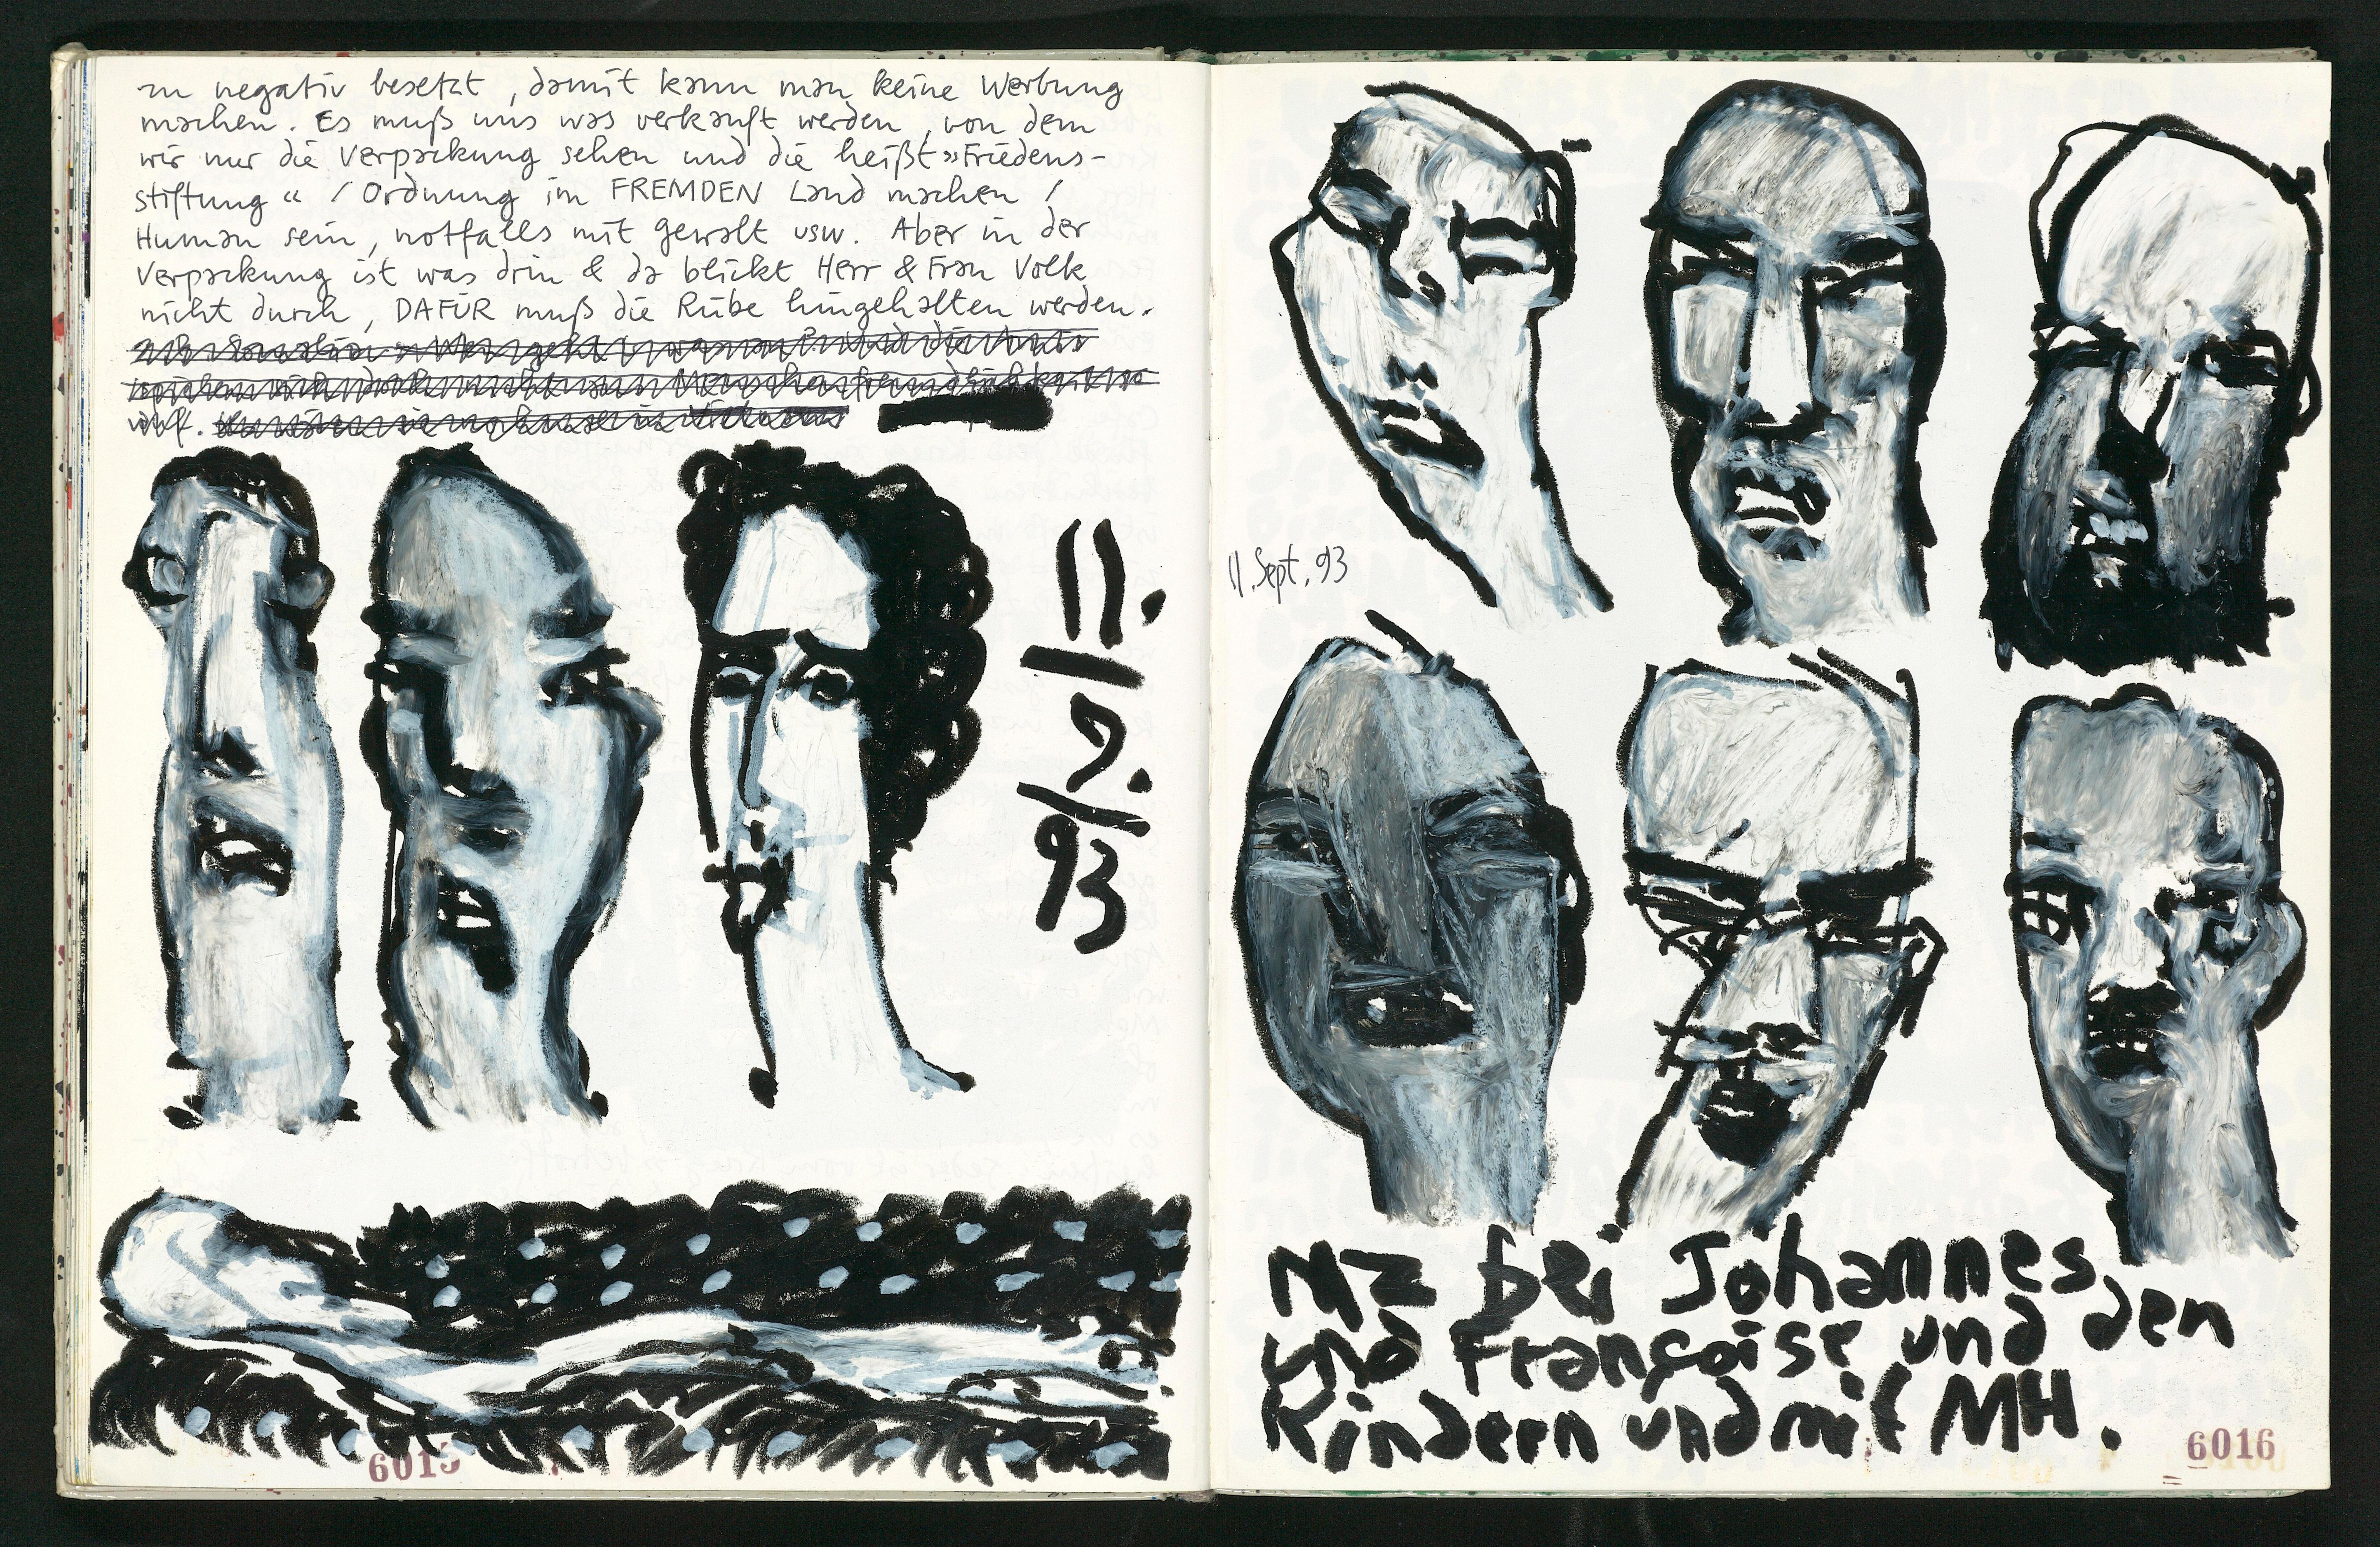 zu negativ besetzt, damit kann man keine Werbung
machen. Es muß uns was verkauft werden, von dem
wir nur die Verpackung sehen und die heißt »Friedens-
stiftung« / Ordnung im FREMDEN Land machen /
Human sein, notfalls mit gewalt usw. Aber in der
Verpackung ist was drin & da blickt Herr & Frau Volk
nicht durch, DAFÜR muß die Rübe hingehalten werden.
11.
9.
93
6015
11. Sept. 93
MZ bei Johannes
und Françoise und den
Kindern und mit MH.
6016